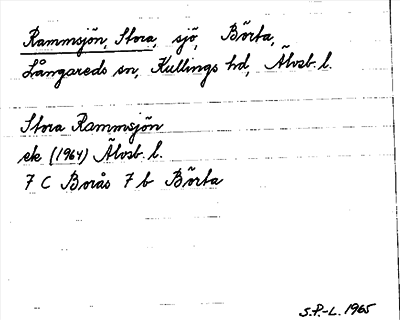 Rammsjön, Stora, sjö, Börta,
Långareds sn, Kullings hd, Älvsb. l.
Stora Rammsjön
ek (1964) Älvsb. l.
7 C Borås 7 b Börta
S.P.-L. 1965